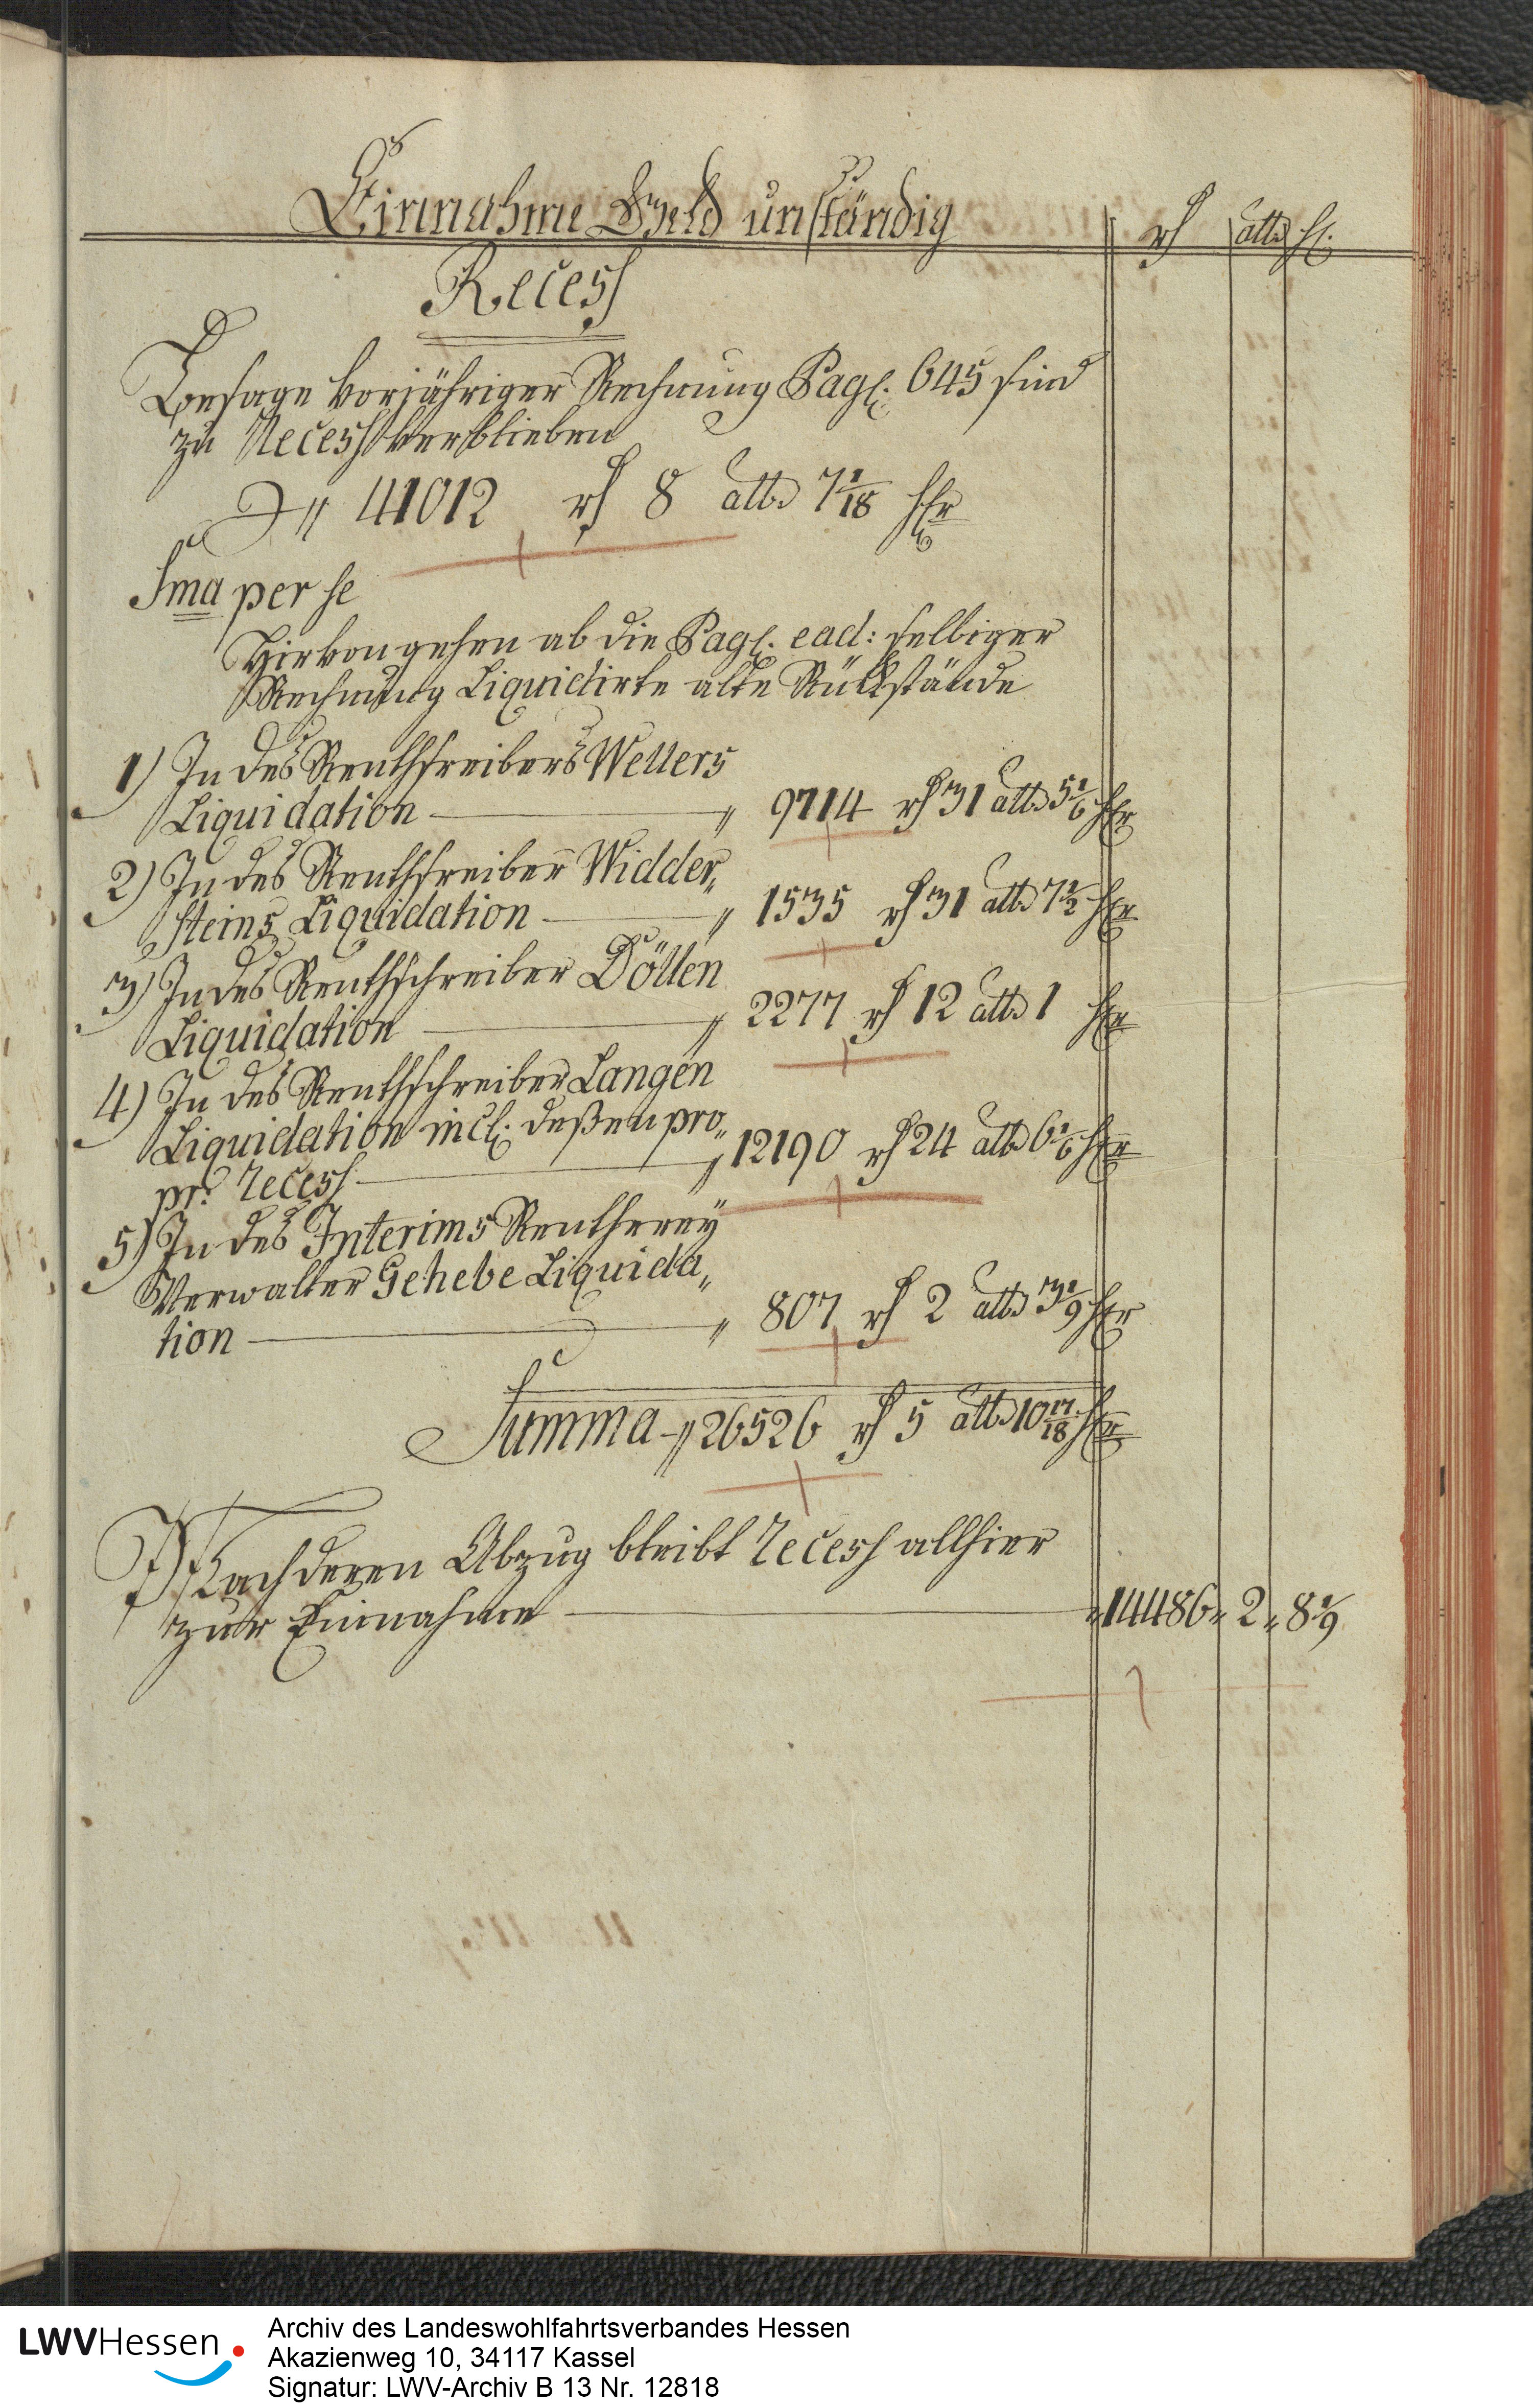 Einnahme Geld unständig
rh albs hl.
Recess
Besage vorjähriger Rechnung Pag. 645 sind
zu Recess verblieben
41012 rh 8 albs 7 1/18 hlr
Sma per se
Hirvon gehen ab die Pag. ead: selbiger
Rechnung Liquidirte alte Rückstände
1) In des Renthschreibers Wellers
Liquidation — 9714 rh 31 albs 5 1/6 hlr
2) In des Renthschreiber Widder„
steins Liquidation — 1535 rh 31 albs 7 1/2 hlr
3) In des Renthschreiber Döllen
Liquidation — 2277 rh 12 albs 1 hlr
4) In des Renthschreiber Langen
Liquidation incl. deßen pro„
pr. Recess — 12190 rh 24 albs 6 1/6 hlr
5) In des Interims Rentherey
Verwalter Gehebe Liquida„
tion — 807 rh 2 albs 3 1/9 hlr
Summa 26526 rh 5 albs 10 17/18 hlr
Nach deren Abzug bleibt Recess allhier
zur Einnahme — 14486 „ 2 „ 8 1/9
LWVHessen
Archiv des Landeswohlfahrtsverbandes Hessen
Akazienweg 10, 34117 Kassel
Signatur: LWV-Archiv B 13 Nr. 12818